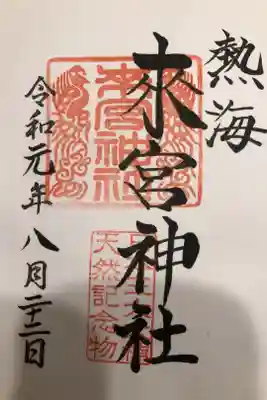 熱海
來宮神社
令和元年八月二十二日
來宮神社
天然記念物